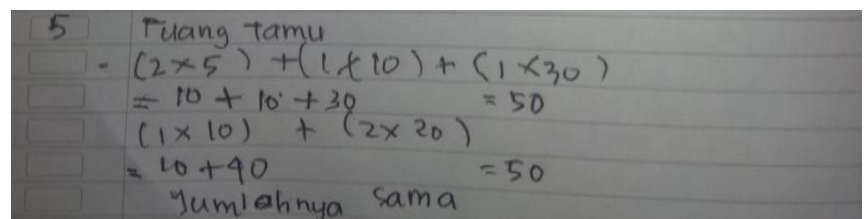 5 ruang tamu
- (2 × 5) + (1 × 10) + (1 × 30)
= 10 + 10 + 30 = 50
(1 × 10) + (2 × 20)
= 10 + 40 = 50
Jumlahnya sama